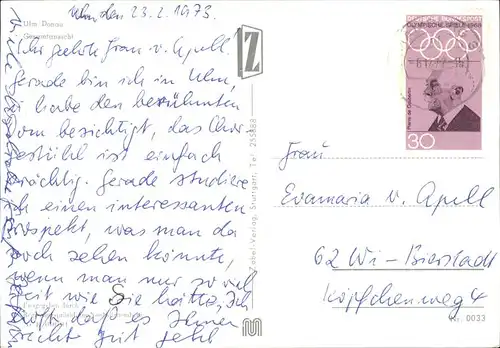 Ulm Donau
Gesamtansicht
Ulm den 23.2.1973.
Sehr geehrte Frau v. Apell.
Gerade bin ich in Ulm,
habe den berühmten
Dom besichtigt, das Chor
gestühl ist einfach
prächtig. Gerade studiere
ich einen interessanten
Prospekt, was man da
noch sehen könnte,
wenn man nur so viel
Zeit wie Sie hätte, Ich
hoffe daß es Ihnen
recht gut geht
Z
Zobel-Verlag, Stuttgart, Tel.
DEUTSCHE BUNDESPOST
OLYMPISCHE SPIELE 1968
Pierre de Coubertin
30
Frau
Evamaria v. Apell
62 Wi-Bierstadt
Köpfchenweg 4
Nr. 0033